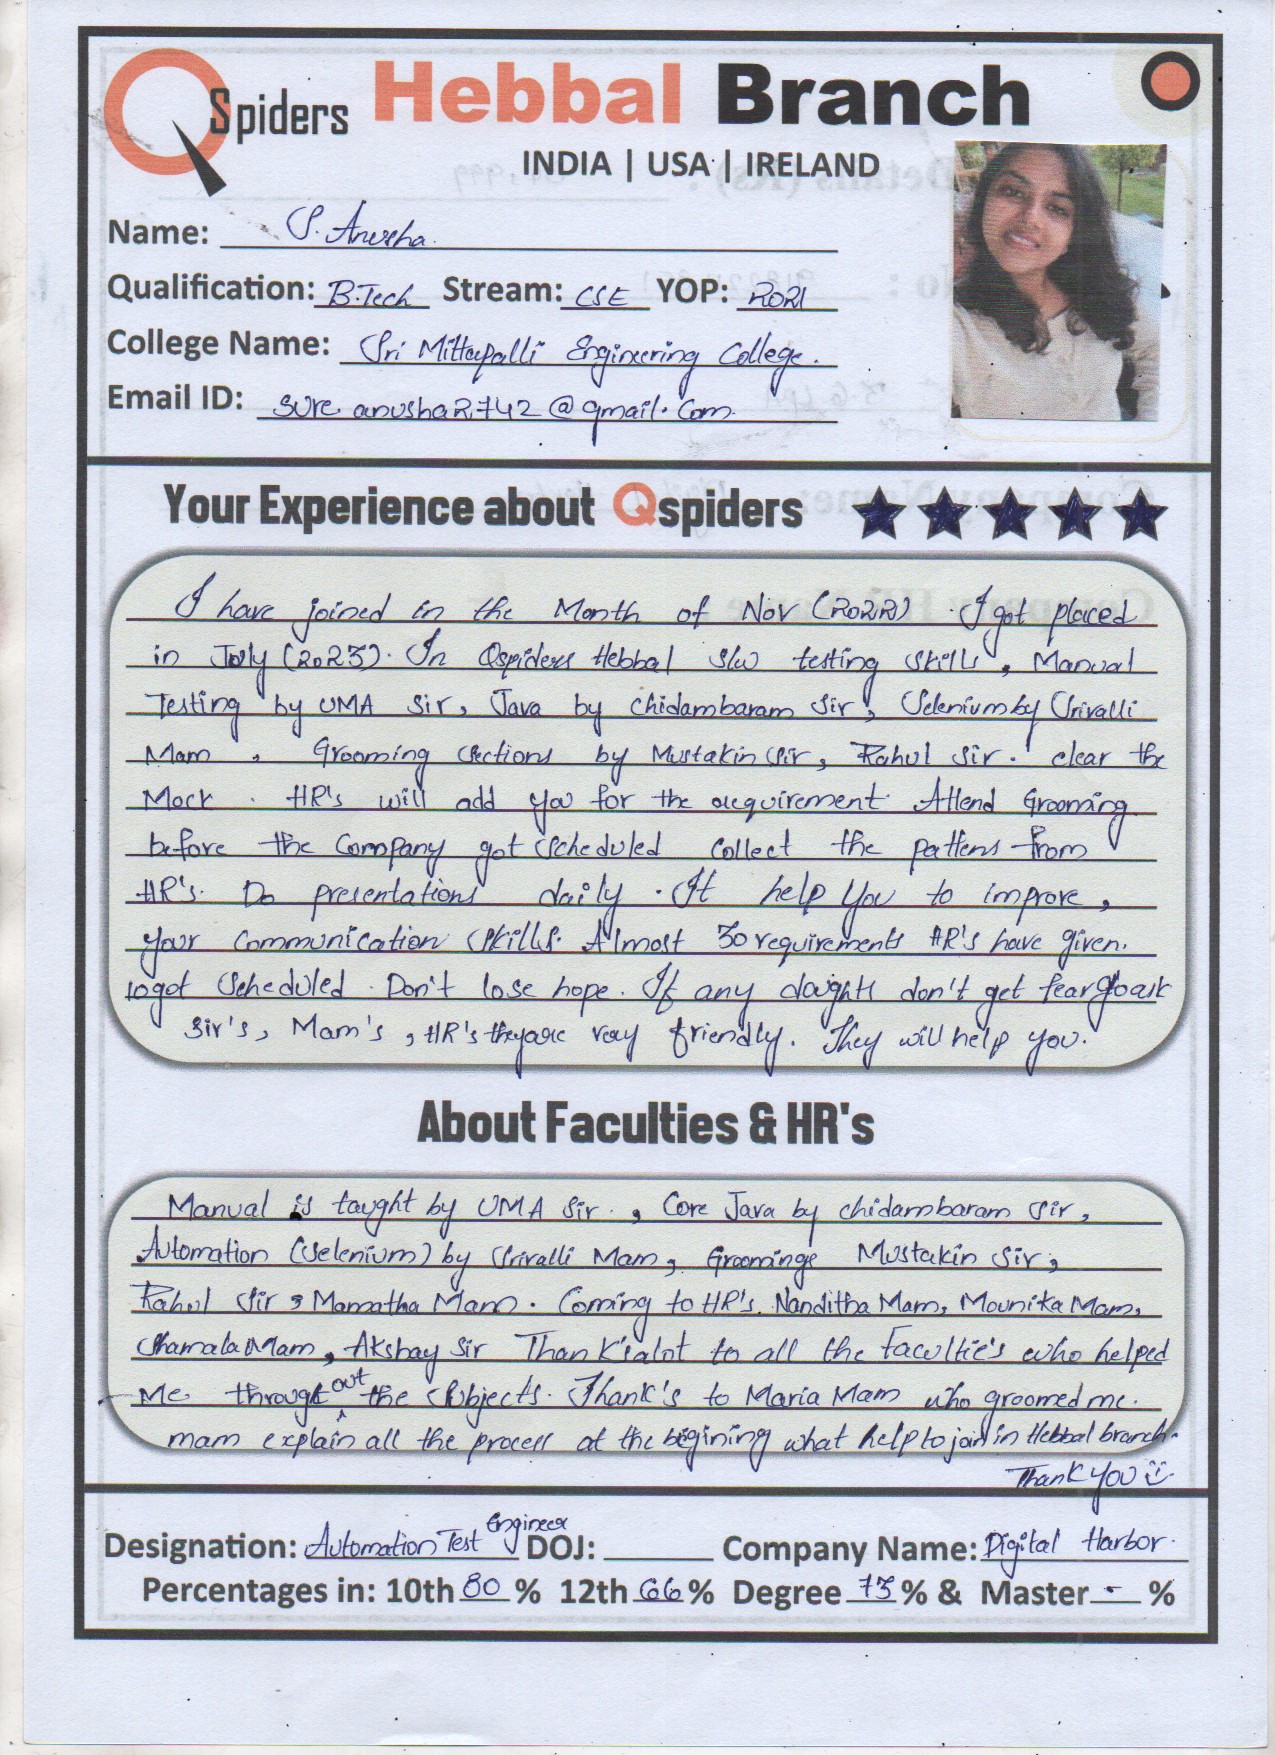 QSpiders Hebbal Branch
INDIA | USA | IRELAND
Name: S. Anusha
Qualification: B.Tech Stream: CSE YOP: 2021
College Name: Sri Mittapalli Engineering College.
Email ID: sure anusha2742@gmail.com
Your Experience about Qspiders
I have joined in the Month of Nov (2022). I got placed
in July (2023). In Qspiders Hebbal s/w testing skills, Manual
Testing by UMA Sir, Java by chidambaram Sir, Selenium by Srivalli
Mam, Grooming sections by Mustakin Sir, Rahul Sir. clear the
Mock. HR's will add you for the requirement. Attend Grooming
before the Company got scheduled collect the pattens from
HR's. Do presentations daily. It help you to improve,
your communication skills. Almost 30 requirements HR's have given.
10 got scheduled. Don't lose hope. If any doughts don't get fear Go ask
Sir's, Mam's, HR's they are very friendly. They will help you.
About Faculties & HR's
Manual is taught by UMA Sir., Core Java by chidambaram Sir,
Automation (Selenium) by Srivalli Mam, Groomings Mustakin Sir,
Rahul Sir, Mamatha Mam. Coming to HR's. Nanditha Mam, Mounika Mam,
Shamala Mam, Akshay Sir Thank's alot to all the Facultie's who helped
Me throught out the Subjects. Thank's to Maria Mam who groomed me.
mam explain all the process at the begining what help to join in Hebbal branch.
Thank you
Designation: Automation Test Engineer DOJ: Company Name: Digital Harbor.
Percentages in: 10th 80 % 12th 66 % Degree 73 % & Master - %